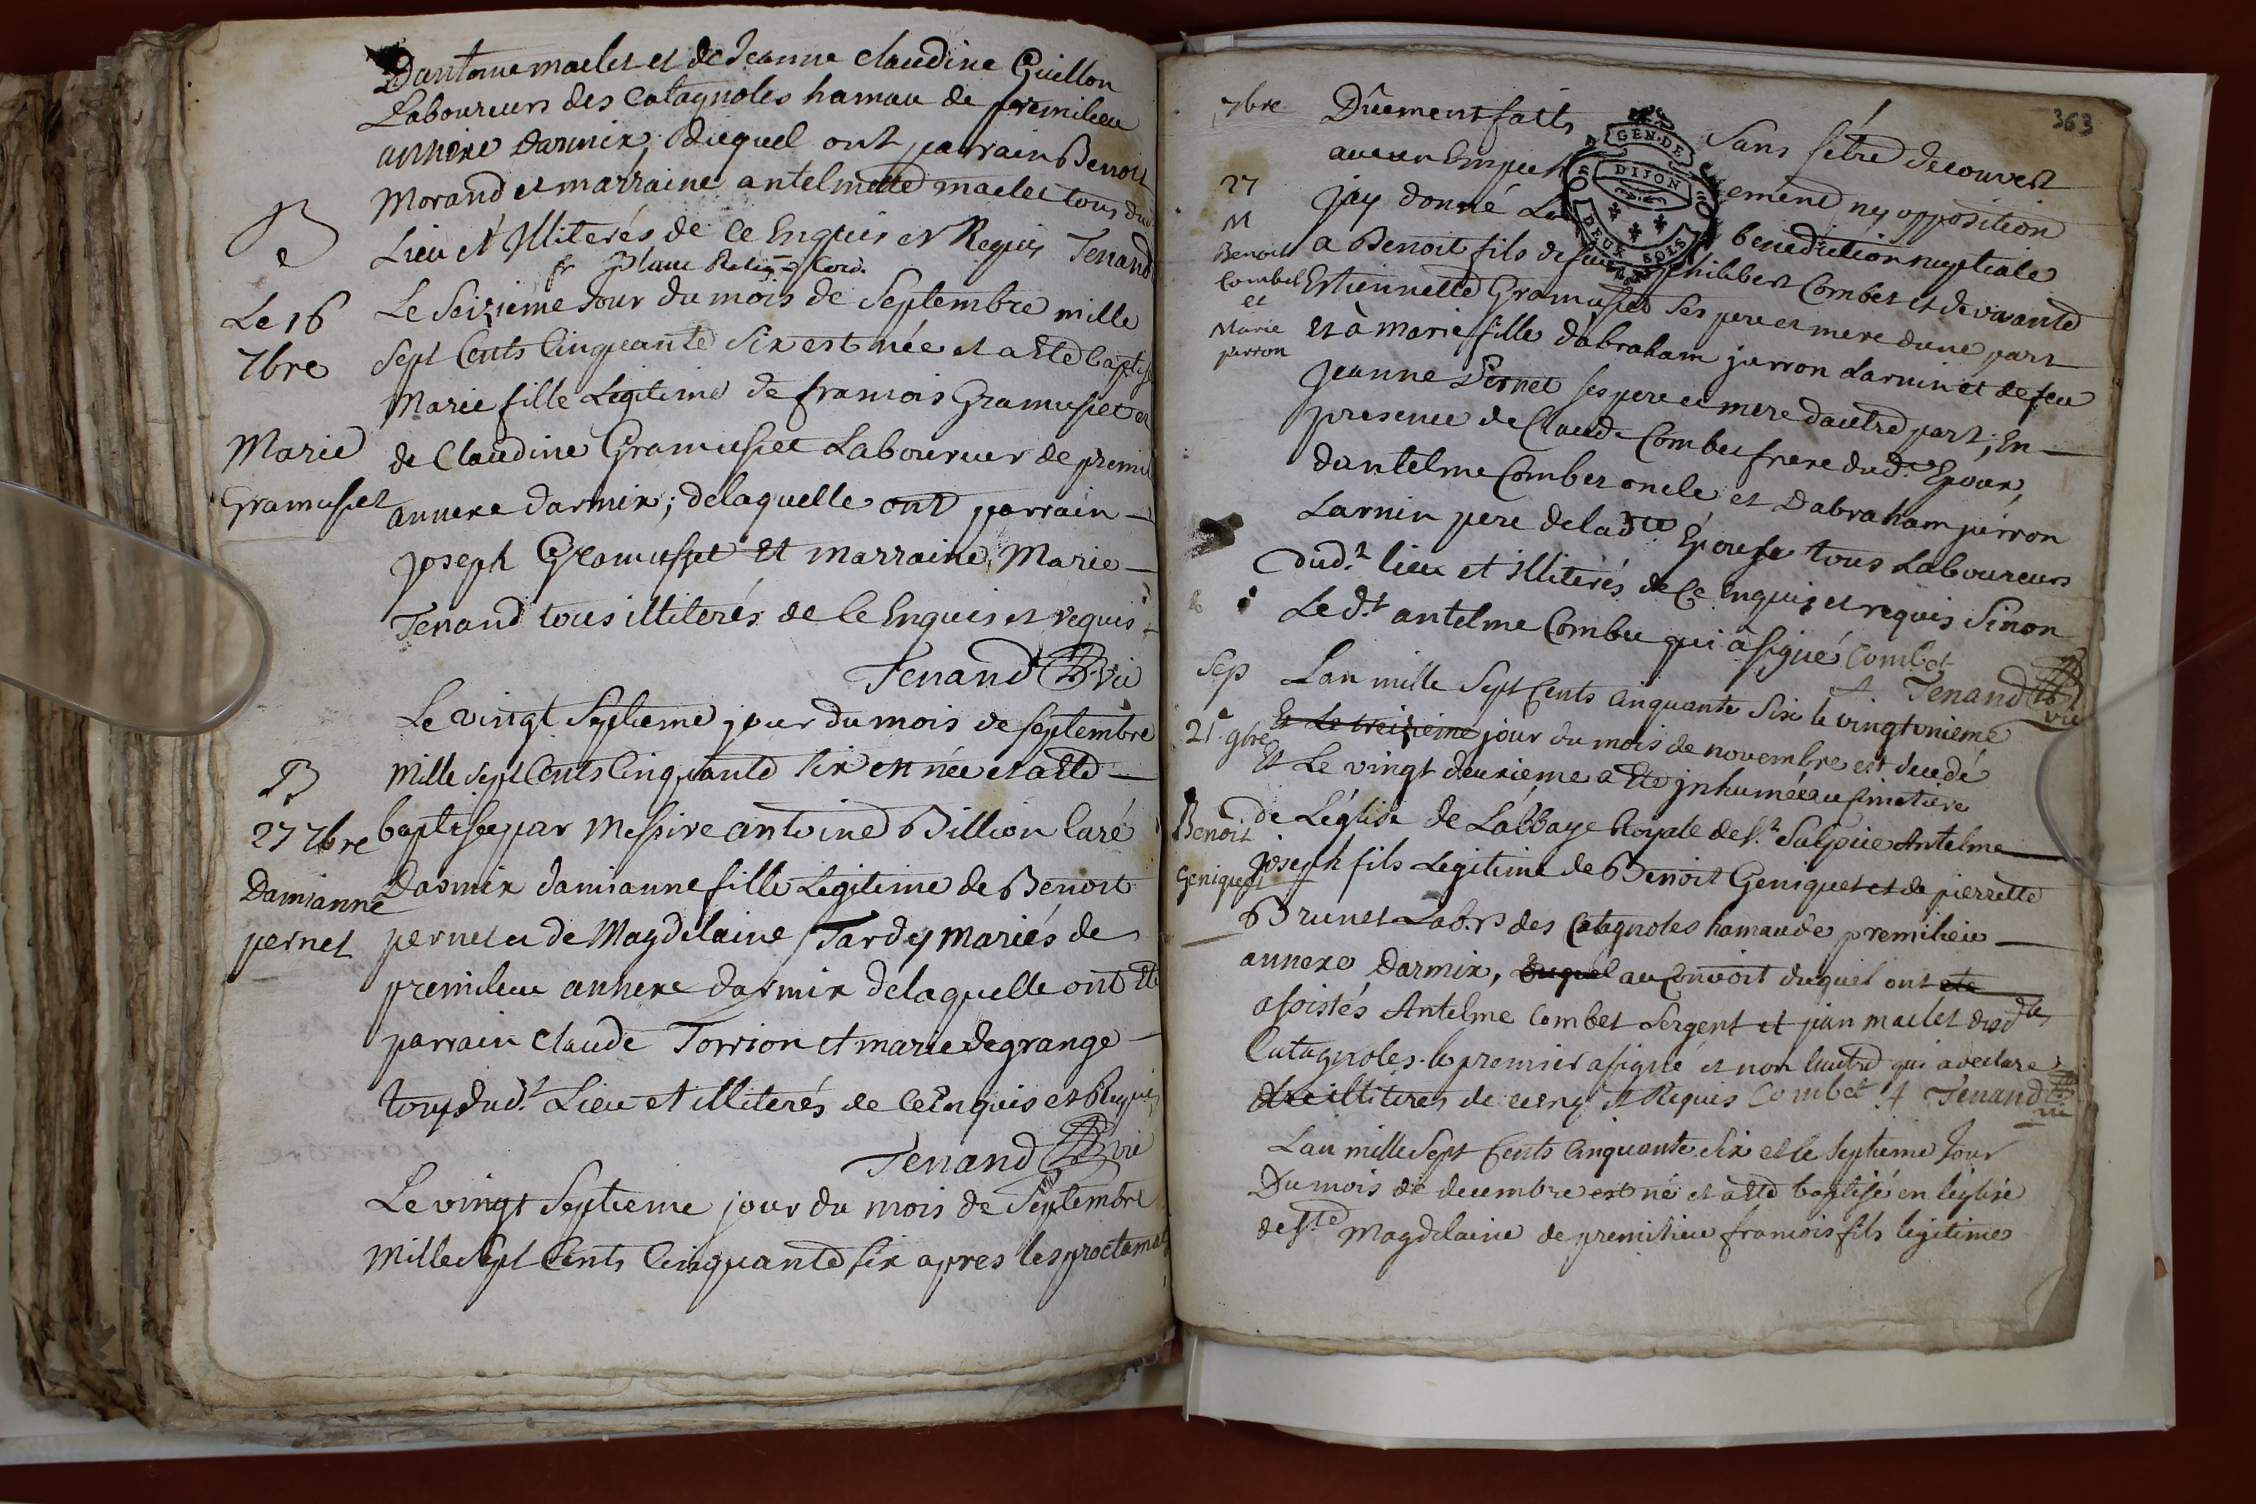 Dantoine maclet et de Jeanne claudine Guillon
Laboureurs des catagnoles hamau de premilieu
annexe darmix; duquel ont parrain Benoit
Morand et marraine antelmette maclet tous dud
Lieu et Illiterés de ce Enquis et Requis Tenand
fr
B
Le 16
7bre
Marie
Gramusset
Le Seizieme Jour du mois de Septembre mille
Sept Cents Cinquante Six est née et a eté baptisé
Marie fille Legitime de francois Gramusset et
de Claudine Gramusset Laboureur de premil
annexe darmix; delaquelle ont parrain
Joseph Gramusset Et marraine Marie
Tenand tous illiterés de Ce Enquis et requis
Tenand vic
B
27 7bre
Damianne
pernet
Le vingt Septieme jour du mois de septembre
Mille sept Cents Cinquante six est née et a eté
baptisée par Messire antoine Billion Curé
Darmix damianne fille Legitime de Benoit
pernet et de Magdelaine Tardy mariés de
premilieu annexe darmix delaquelle ont eté
parrain Claude Torrion et marie degrange
tous dud.t Lieu et illiterés de Ce Enquis et Requis
Tenand vic
Le vingt Septieme jour du mois de Septembre
Mille Sept Cents Cinquante six apres les proclamat
363
7bre
27
M
Benoit
Combet
et
Marie
perron
Dûement faits Sans s'étre decouvert
aucun Empechement ny opposition
GEN. DE
DIJON
DEUX SOLS
Jay donné La benediction nuptiale
a Benoit fils de feu philibert Combet et de vivante
Estiennette Gramusset Ses pere et mere dune part
et à marie fille dabraham perron Larnin et de feu
Jeanne Pernet ses pere et mere dautre part; En
presence de Claude Combet frere dud.t Epoux,
dantelme Combet oncle, et Dabraham perron
Larnin pere de lad.te Epouse tous Laboureurs
dud.t lieu et illiterés de Ce Enquis et requis Sinon
Le d.t antelme Combet qui a signé Combet
A. Tenand vic
Sep
21.e 9bre
Benoit
Geniquet
Lan mille Sept Cents Cinquante Six le vingtunieme
Et Le treizieme jour du mois de novembre est decedé
Et Le vingt deuxieme a Eté inhumé au simetiere
de L'église de L'abbaye Royale de St. Sulpice Antelme
Joseph fils Legitime de Benoit Geniquet et de pierrette
Brunet Lab.rs des Catagnoles hamau de premilieu
annexe Darmix, duquel au Convoit duquel ont eté
assistés Antelme Combet Sergent et jean maclet dud.
Catagnoles. le premier a signé et non lautre qui a declare
Etre illiteres de ce enq et Requis Combet A Tenand vic
Lan mille Sept Cents Cinquante Six et le Septieme Jour
Du mois de decembre est né et a eté baptisé en leglise
de s.te Magdelaine de premilieu francois fils legitime